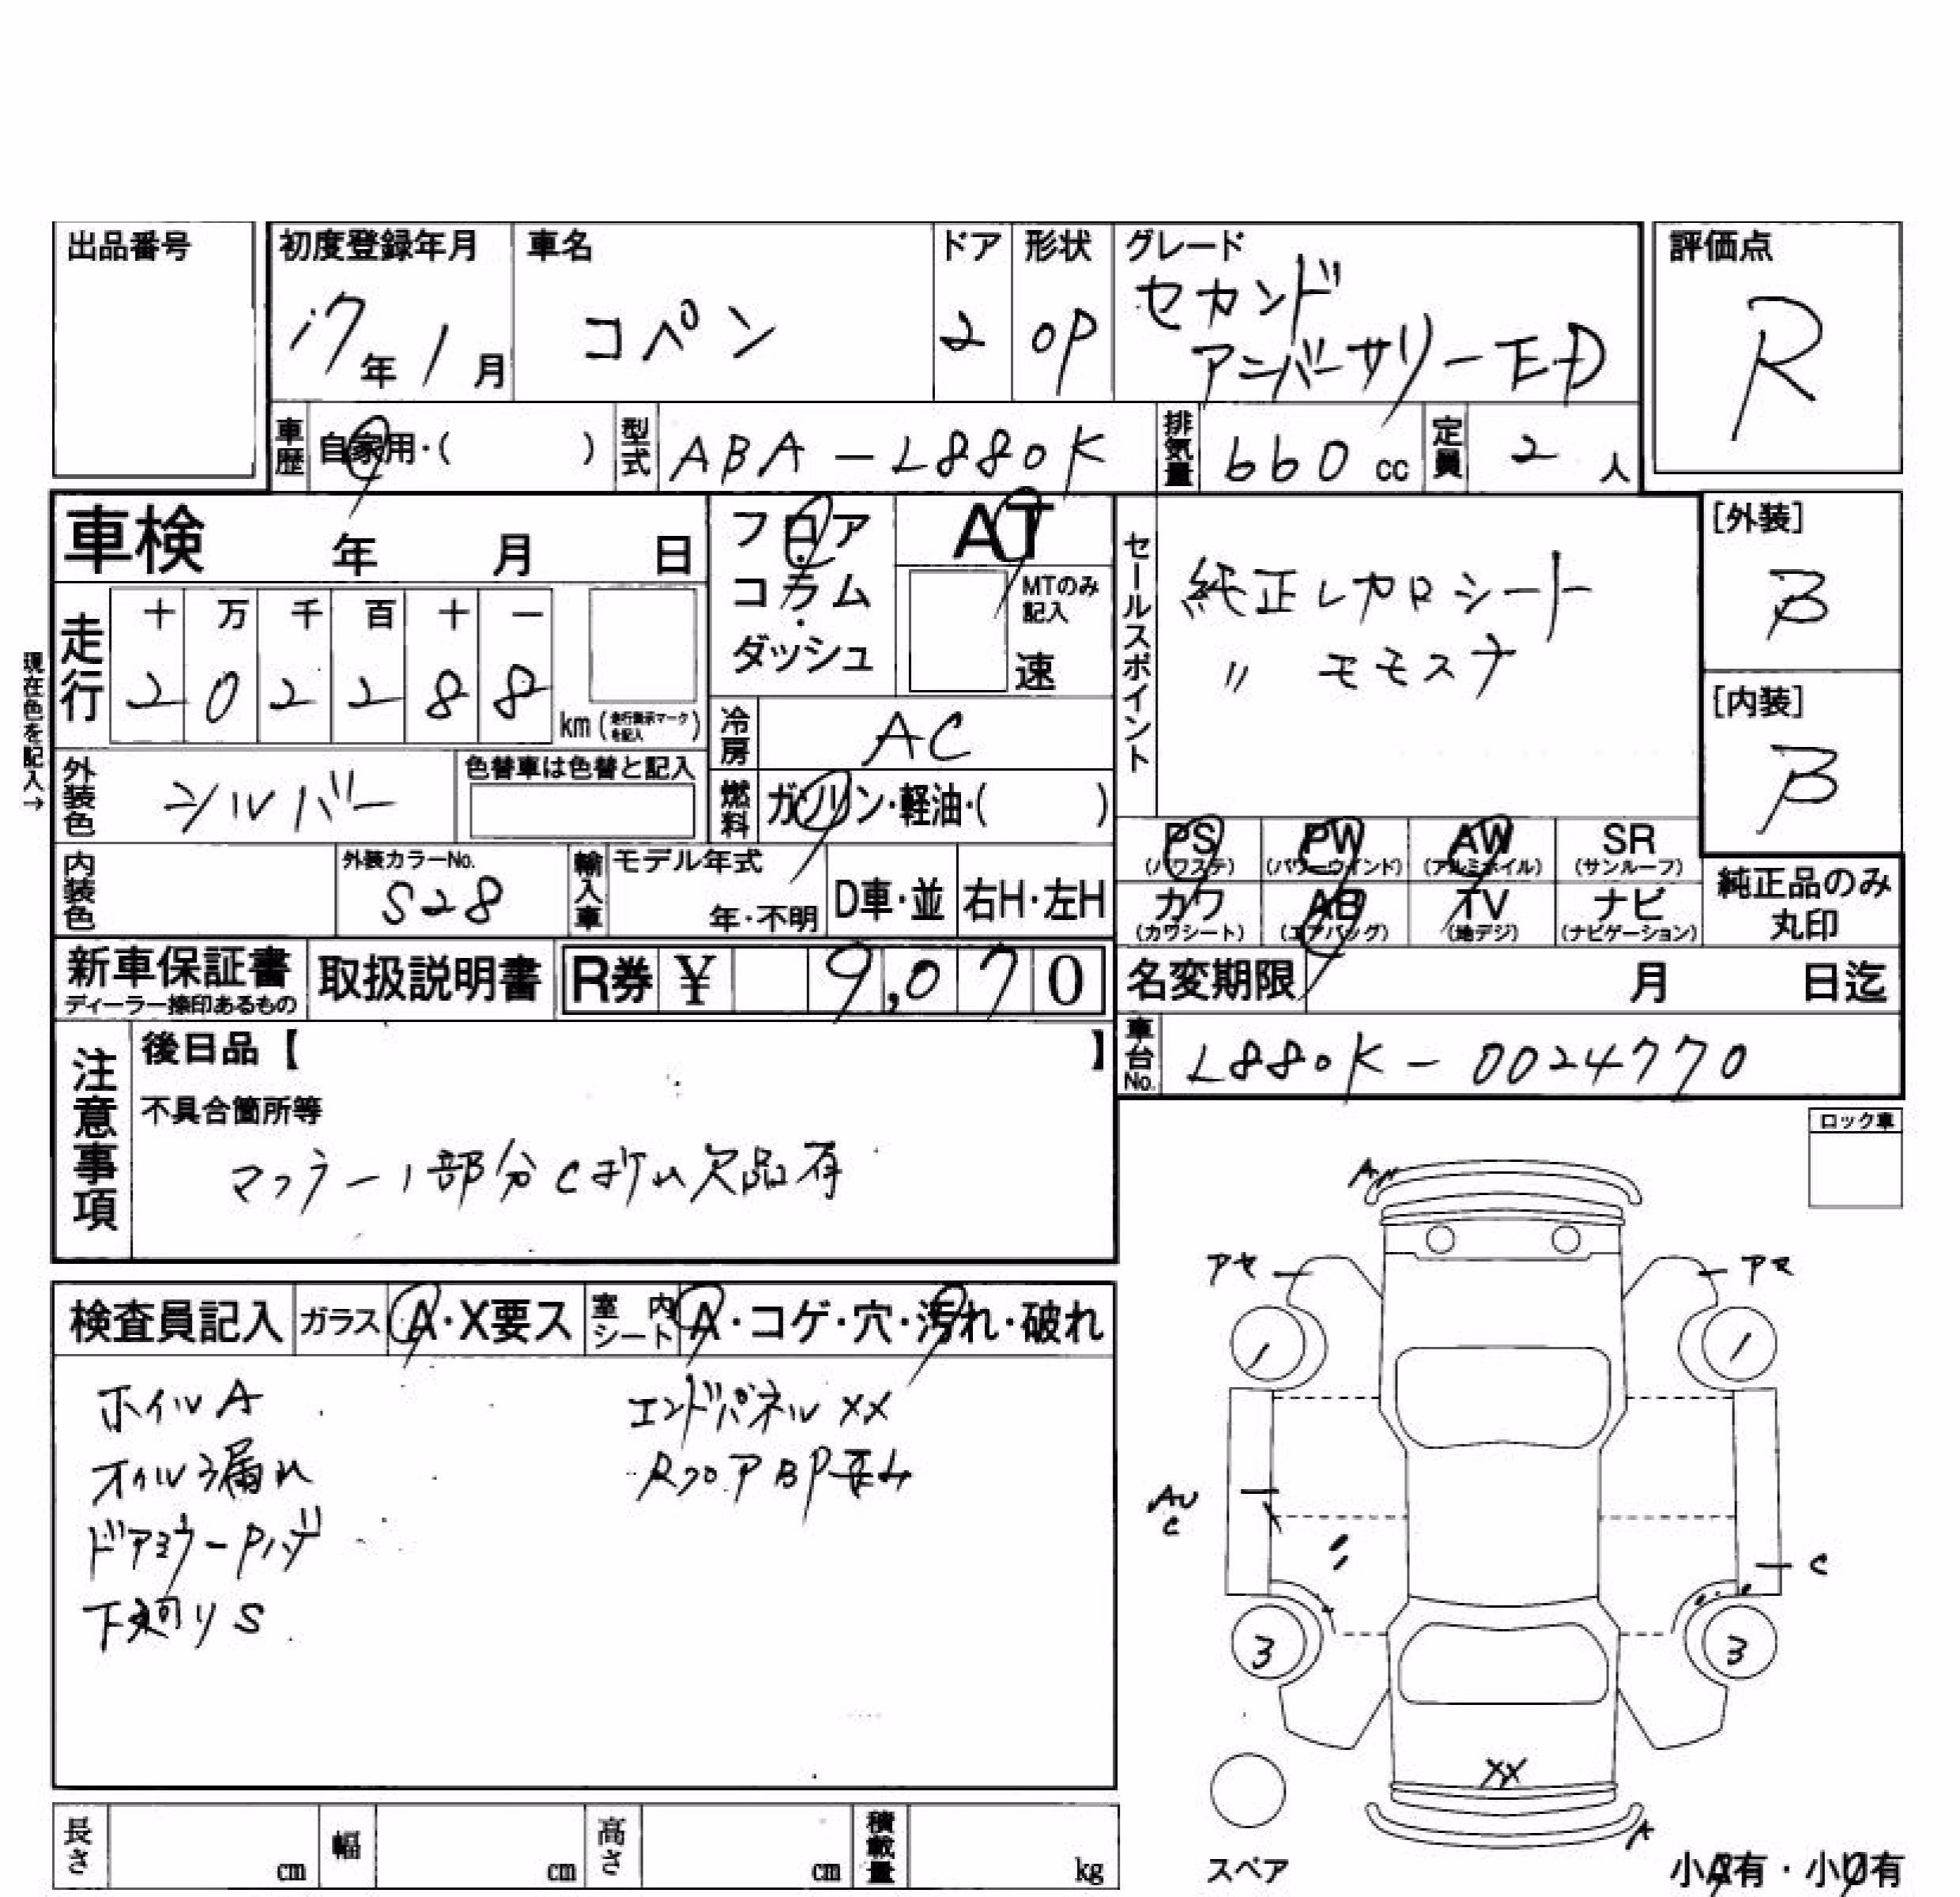 出品番号
初度登録年月
17年1月
車名
コペン
ドア
2
形状
OP
グレード
セカンド
アニバーサリーED
評価点
R
車歴
自家用・( )
型式
ABA-L880K
排気量
660cc
定員
2人
車検 年 月 日
フロア
・
コラム
・
ダッシュ
AT
MTのみ
記入
速
セールスポイント
純正レカロシート
〃 モモステ
[外装]
B
[内装]
B
現在色を記入→
走行
十 万 千 百 十 一
2 0 2 2 8 8
km(走行表示マークを記入)
冷房
AC
外装色
シルバー
色替車は色替と記入
燃料
ガソリン・軽油・( )
PS
(パワステ)
PW
(パワーウインド)
AW
(アルミホイル)
SR
(サンルーフ)
カワ
(カワシート)
AB
(エアバッグ)
TV
(地デジ)
ナビ
(ナビゲーション)
純正品のみ
丸印
内装色
外装カラーNo.
S28
輸入車
モデル年式
年・不明
D車・並
右H・左H
新車保証書
ディーラー捺印あるもの
取扱説明書
R券 ¥ 9,070
名変期限 月 日迄
車台No.
L880K-0024770
注意事項
後日品【 】
不具合箇所等
マフラー1部分Cボケム欠品有
ロック車
検査員記入
ガラス
A・X要ス
室内シート
A・コゲ・穴・汚れ・破れ
ホイルA
エンドパネルXX
オイル漏れ
RフロアBP歪み
ドアミラーPハゲ
下廻りS
アセ
アセ
1
1
AU
C
C
3
3
XX
A
スペア
小A有・小U有
長さ cm
幅 cm
高さ cm
積載量 kg